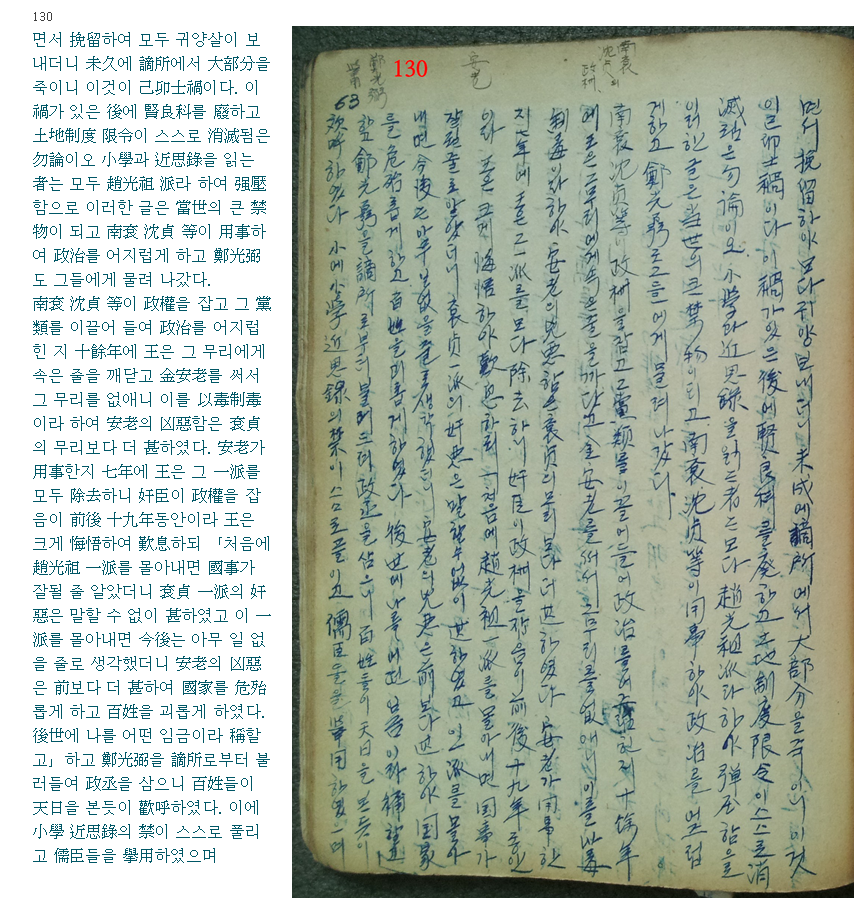 130
면서 挽留하여 모두 귀양살이 보
내더니 未久에 謫所에서 大部分을
죽이니 이것이 己卯士禍이다. 이
禍가 있은 後에 賢良科를 廢하고
土地制度 限令이 스스로 消滅됨은
勿論이오 小學과 近思錄을 읽는
者는 모두 趙光祖 派라 하여 强壓
함으로 이러한 글은 當世의 큰 禁
物이 되고 南袞 沈貞 等이 用事하
여 政治를 어지럽게 하고 鄭光弼
도 그들에게 물려 나갔다.
南袞 沈貞 等이 政權을 잡고 그 黨
類를 이끌어 들여 政治를 어지럽
힌 지 十餘年에 王은 그 무리에게
속은 줄을 깨닫고 金安老를 써서
그 무리를 없애니 이를 以毒制毒
이라 하여 安老의 凶惡함은 袞貞
의 무리보다 더 甚하였다. 安老가
用事한지 七年에 王은 그 一派를
모두 除去하니 奸臣이 政權을 잡
음이 前後 十九年동안이라 王은
크게 悔悟하여 歎息하되 「처음에
趙光祖 一派를 몰아내면 國事가
잘될 줄 알았더니 袞貞 一派의 奸
惡은 말할 수 없이 甚하였고 이 一
派를 몰아내면 今後는 아무 일 없
을 줄로 생각했더니 安老의 凶惡
은 前보다 더 甚하여 國家를 危殆
롭게 하고 百姓을 괴롭게 하였다.
後世에 나를 어떤 임금이라 稱할
고」하고 鄭光弼을 謫所로부터 불
러들여 政丞을 삼으니 百姓들이
天日을 본듯이 歡呼하였다. 이에
小學 近思錄의 禁이 스스로 풀리
고 儒臣들을 擧用하였으며
130
南袞
沈貞의
政權
安老
鄭光弼
63
면서 挽留하야 모다 귀양보내더니 未成에 謫所에서 大部分을 주이니 이것
이 己卯士禍이다 이 禍가 있은 後에 賢良科를 廢하고 土地制度限令이 스스로 消
滅됨은 勿論이오 小學과 近思錄을 읽는 者는 모다 趙光祖派라 하야 함을
이러한 글은 當世의 큰 禁物이 되고 南袞沈貞等이 用事하야 政治를 어즈럽
게하고 鄭光弼도 그들에게 물려 나갔다
南袞沈貞等이 政權을 잡고 그 黨類를 이끌어들여 政治를 어즈럽힌지 十餘年
에 王은 그 무리에게 속은 줄을 깨닫고 金安老를 써서 그 무리를 없애니 이를 以毒
制毒이라 하야 安老의 凶惡함은 袞貞의 무리보다 더 甚하였다 安老가 用事한
지 七年에 王은 그 一派를 모다 除去하니 奸臣이 政權을 잡음이 前後十九年동안
이라 王은 크게 悔悟하야 歎息하되 「처음에 趙光祖一派를 몰아내면 国事가
잘될 줄로 알았더니 袞貞一派의 奸惡은 말할 수 없이 甚하였고 이 一派를 몰아
내면 今後는 아무 일 없을 줄로 생각했더니 安老의 凶惡은 前보다 甚하야 国家
를 危殆롭게 하고 百姓을 괴롭게 하였다 後世에 나를 어떤 임금이라 稱할고
하고 鄭光弼을 謫所로부터 불러드려 政丞을 삼으니 百姓들이 天日을 본듯이
歡呼하였다 이에 小學近思錄의 禁이 스스로 풀리고 儒臣들을 擧用하였으며